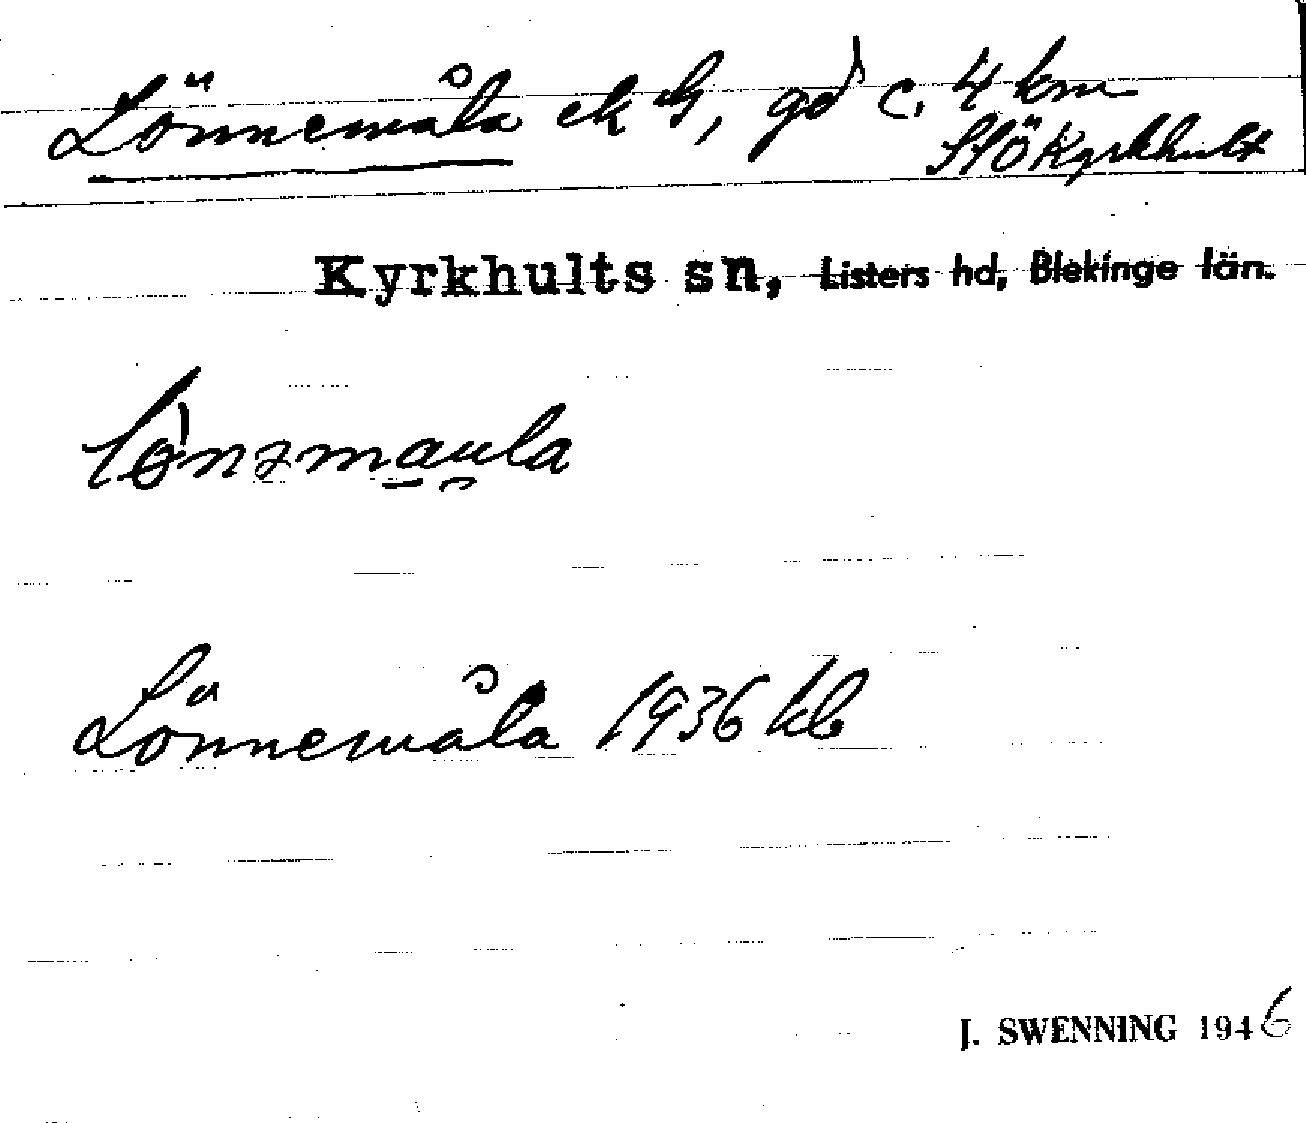 Lönnemåla ek bl, gd c. 4 km
SSÖ Kyrkhult
Kyrkhults sn, Listers hd, Blekinge län.
lønəmau̯la
Lönnemåla 1936 kb
J. SWENNING 1946